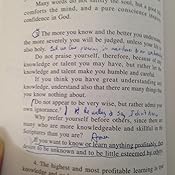 Many words do not satisfy the soul, but a good
comforts the mind, and a pure conscience inspires
confidence in God.
The more you know and the better you understand,
the more severely you will be judged, unless your life
Do not praise yourself, therefore, because of any
knowledge or talent you may have, but rather
knowledge and talent make you humble and careful.
If you think you have great understanding and
knowledge, understand also that there are many things
you know nothing about.
Do not appear to be very wise, but rather admit your
own ignorance.
Why prefer yourself before others, since there
are many more knowledgeable and skillful in the
Scriptures than you are?
If you want to know or learn anything profitably,
desire to be unknown and to be little esteemed by others.
4. The highest and most profitable learning is